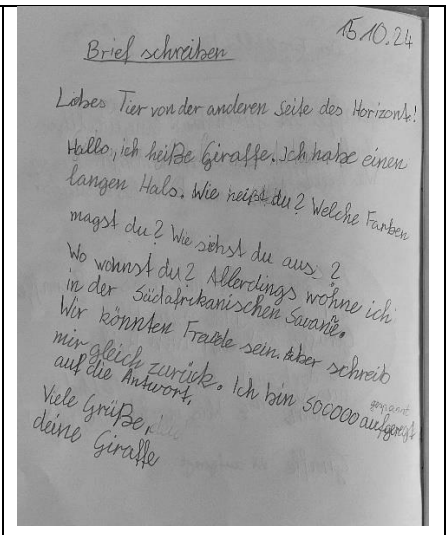 15.10.24
Brief schreiben
Liebes Tier von der anderen Seite des Horizonts!
Hallo, ich heiße Giraffe. Ich habe einen
langen Hals. Wie heißt du? Welche Farben
magst du? Wie siehst du aus?
Wo wohnst du? Allerdings wohne ich
in der Südafrikanischen Savane.
Wir könnten Freude sein. Aber schreib
mir gleich zurück. Ich bin 500000 aufgeregt
gespannt
auf die Antwort.
Viele Grüße,
deine Giraffe